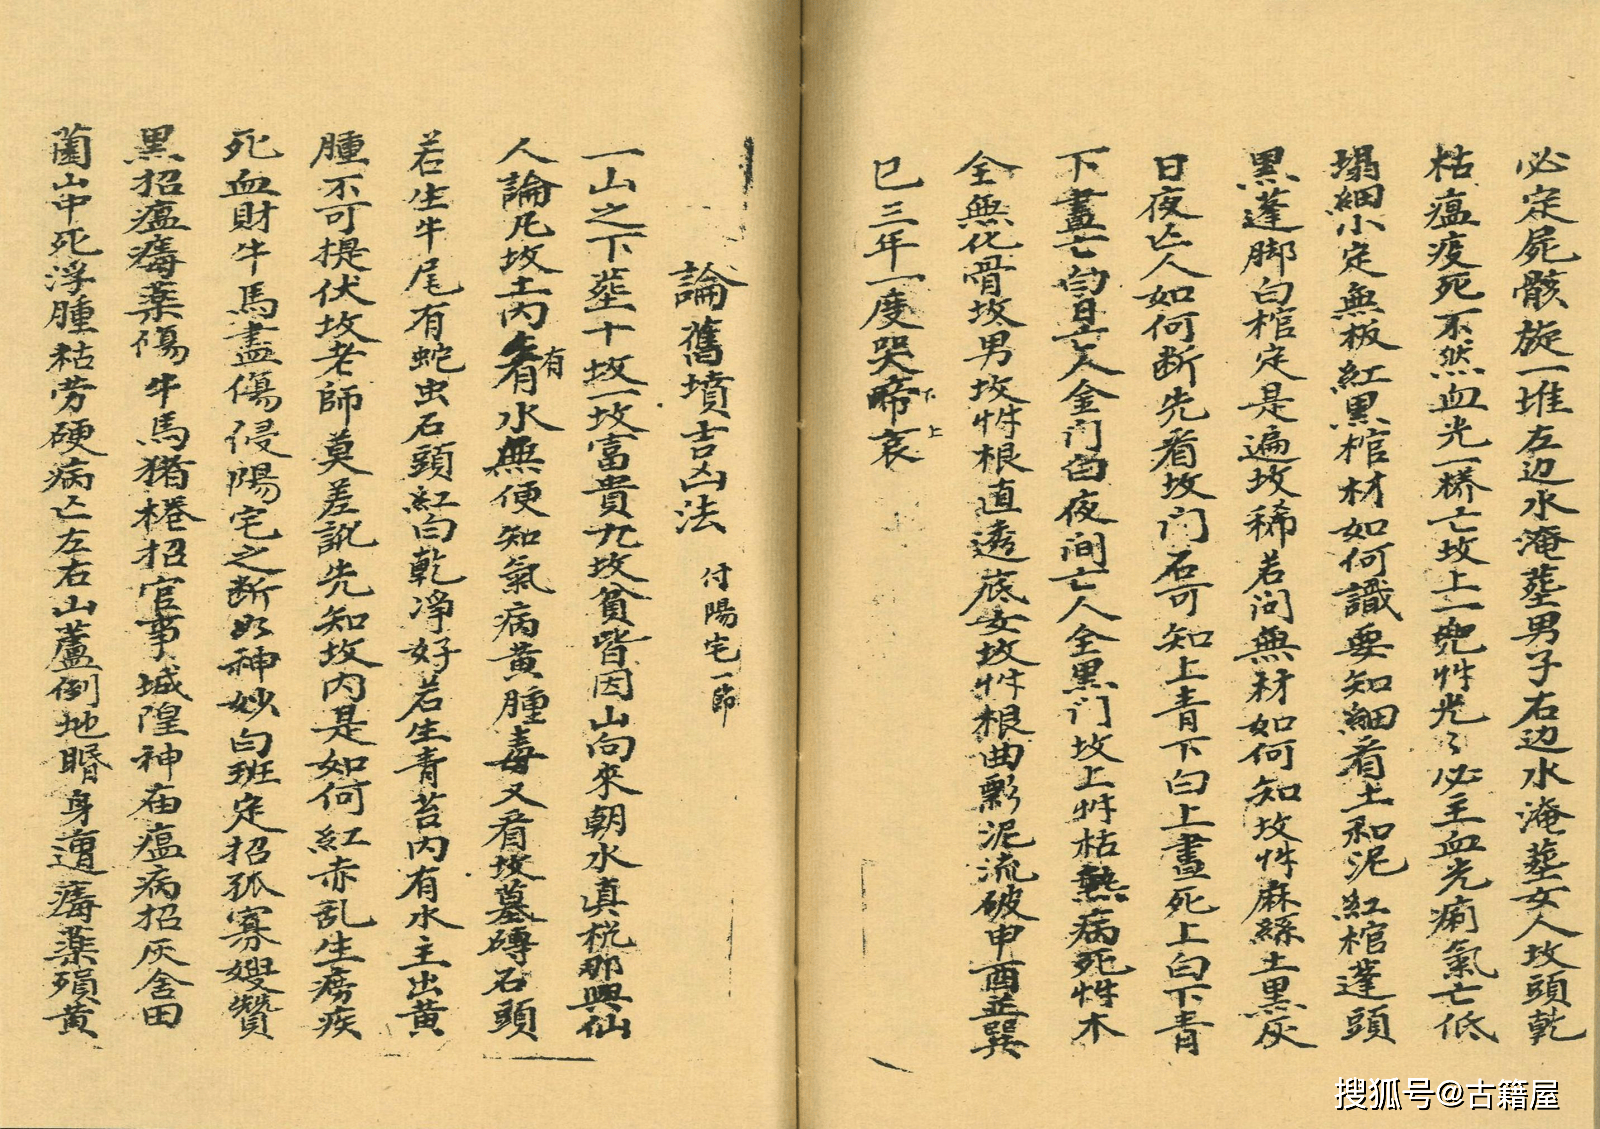 必定屍骸旋一堆左边水淹塟男子右边水淹塟女人坟頭乾
枯瘟疫死不然血光一桥亡坟上一兜艸光〻必主血光痢氣亡低
塌細小定無板紅黒棺材如何識要知細看土和泥紅棺蓬頭
黒蓬脚白棺定是遍坟稀若问無材如何知坟艸麻絲土黒灰
日夜亡人如何断先看坟门石可知上青下白上晝死上白下青
下晝亡匀日亡人金门白夜间亡人全黒门坟上艸枯熱病死性木
全無化骨坟男坟艸根直透底女坟艸根曲飄泥流破申酉並巽
巳三年一度哭啼哀
下上
論舊墳吉凶法 付陽宅一節
一山之下塟十坟一坟富貴九坟貧皆因山向來朝水真梲那與仙
人論凡坟土内看有水無便知氣病黄腫毒又看坟墓磚石頭
若生牛尾有蛇虫石頭紅白乾净好若生青苔内有水主出黄
腫不可提伏坟老師莫差訊先知坟内是如何紅赤乱生痨疾
死血財牛馬盡傷侵陽宅之断如神妙白班定招孤寡嫂贊
黒招瘟㾺藥傷牛馬猪棬招官事城隍神庙瘟病招灰舍田
薗山中死浮腫䊀劳硬病亡左右山蘆倒地㬳身遭㾺藥殞黄
搜狐号@古籍屋